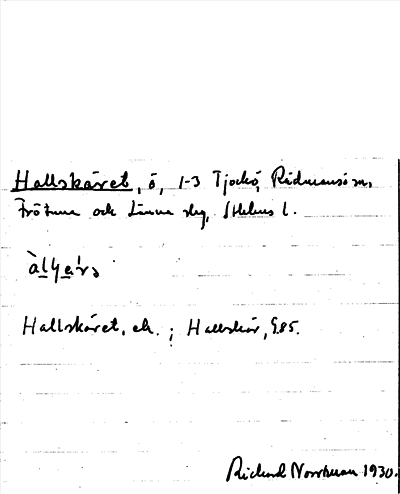 Hallskäret, ö, 1-3 Tjockö, Rådmansö sn,
Frötuna och Länna slg, Sthlms l.
Hallskäret, ek. ; Hallskär, G85.
Richard Norrman 1930.